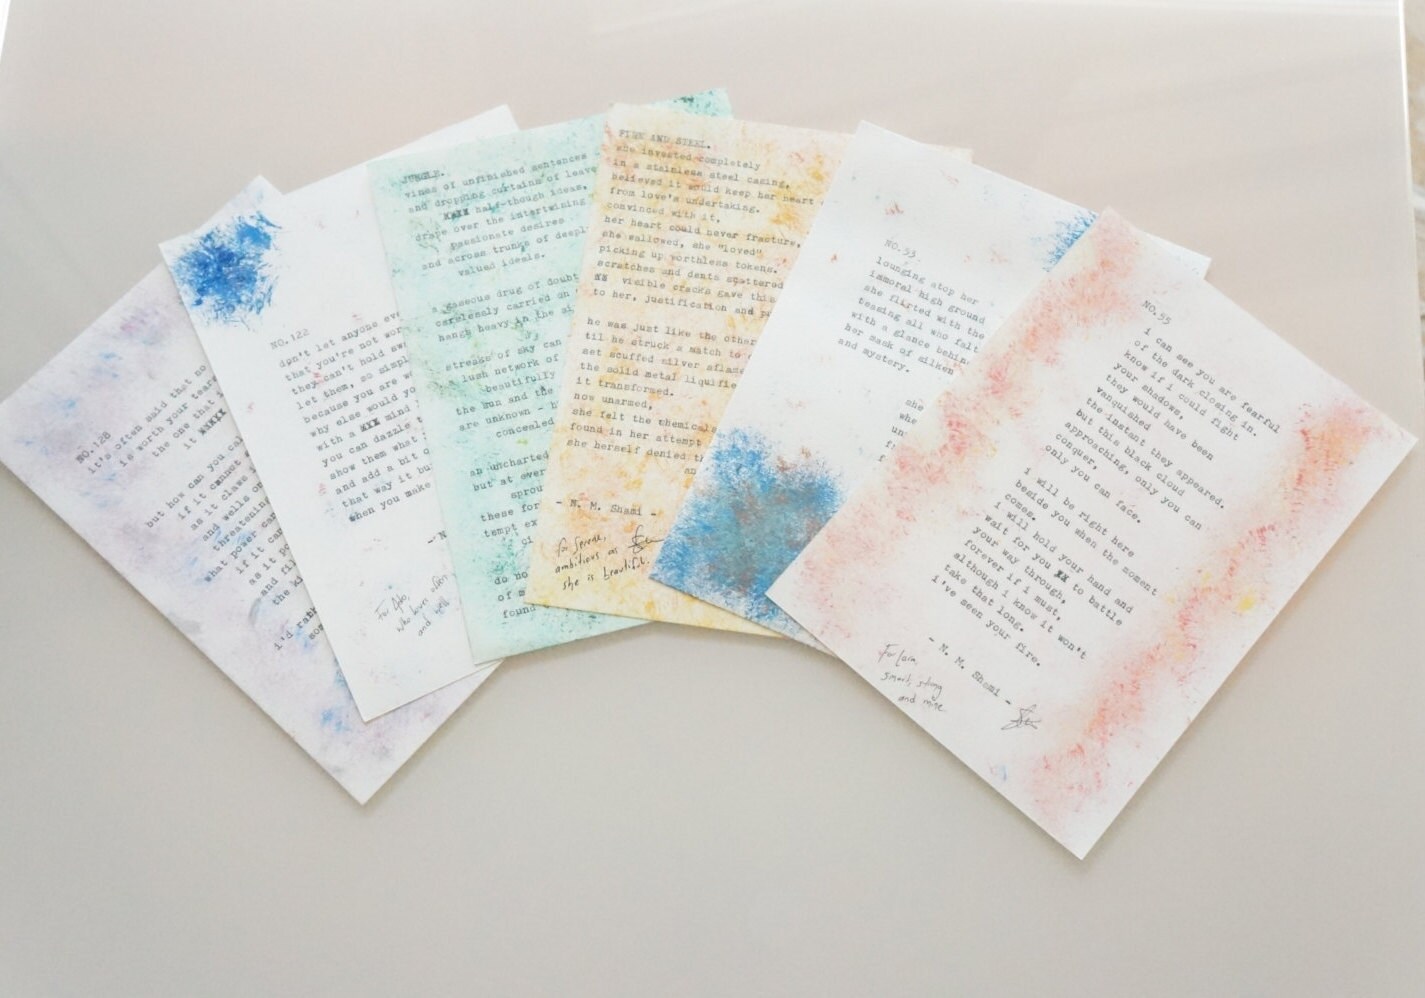 NO.128
it's often said that no
is worth your tears
the one that i
it XXXX
but how can you cal
if it cannot
as it claws
and wells
threatening
what power ca
if it ca
as it po
and fil
the k
i'd rath
som
NO.122
don't let anyone eve
that you're not wor
they can't hold sw
let them, so simpl
because you are yo
why else would yo
with a XXX mind
you can dazzle
show them what
and add a bit o
that way it bu
when you make
who loves often
and well
JUNGLE.
vines of unfinished sentences
and dropping curtains of leave
XXXX half-though ideas.
drape over the intertwining
passionate desires
and across trunks of deepl
valued ideals.
a gaseous drug of doubt
carelessly carried on
hangs heavy in the ai
streaks of sky can
lush network of
beautifully
the sun and the
are unknown - h
concealed
an uncharted
but at ever
sprou
these for
tempt ex
do no
of m
found
FIRE AND STEEL.
she invested completely
in a stainless steel casing,
believed it would keep her heart
from love's undertaking.
convinced with it,
her heart could never fracture,
she sallowed, she "loved"
picking up worthless tokens.
scratches and dents scattered
XX visible cracks gave this
to her, justification and p
he was just like the other
til he struck a match to
set scuffed silver aflame
the solid metal liquifie
it transformed.
now unarmed,
she felt the chemical
found in her attempt
she herself denied th
an
- N. M. Shami -
for Serene,
ambitious as
she is beautiful.
NO.53
lounging atop her
immoral high ground
she flirted with the
teasing all who falt
with a glance behind
her mask of silken
and mystery.
she
whe
un
f
NO.55
i can see you are fearful
of the dark closing in.
know if i could fight
your shadows,
they would have been
vanquished
the instant they appeared.
but this black cloud
approaching, only you can
conquer,
only you can face.
i will be right here
beside you when the moment
comes.
i will hold your hand and
wait for you XX to battle
your way through,
forever if i must,
although i know it won't
take that long.
i've seen your fire.
- N. M. Shami -
smart, strong
and mine